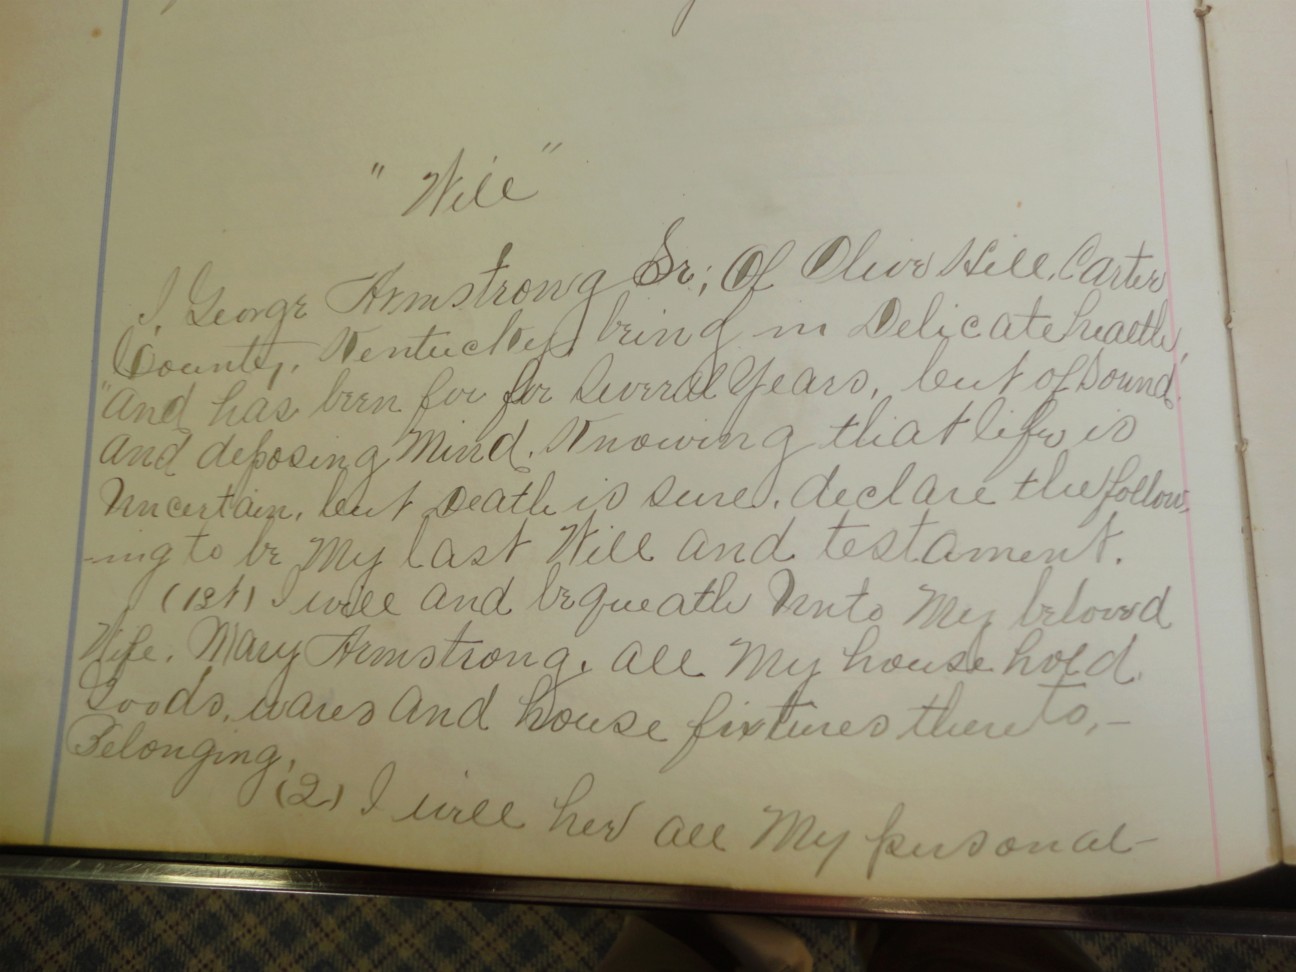 " Will "
I, George Armstrong Sr; Of Olive Hill, Carter
County, Kentucky, being in Delicate health,
"And has been for for Several Years, but of Sound
And deposing Mind. Knowing that life is
Uncertain, but Death is sure, declare the follow,
-ing to be My last Will and testament.
(1st) I will and bequeath Unto My beloved
Wife, Mary Armstrong, all My house hold
Goods, wares and house fixtures there to,-
Belonging,
(2) I will her all My personal-